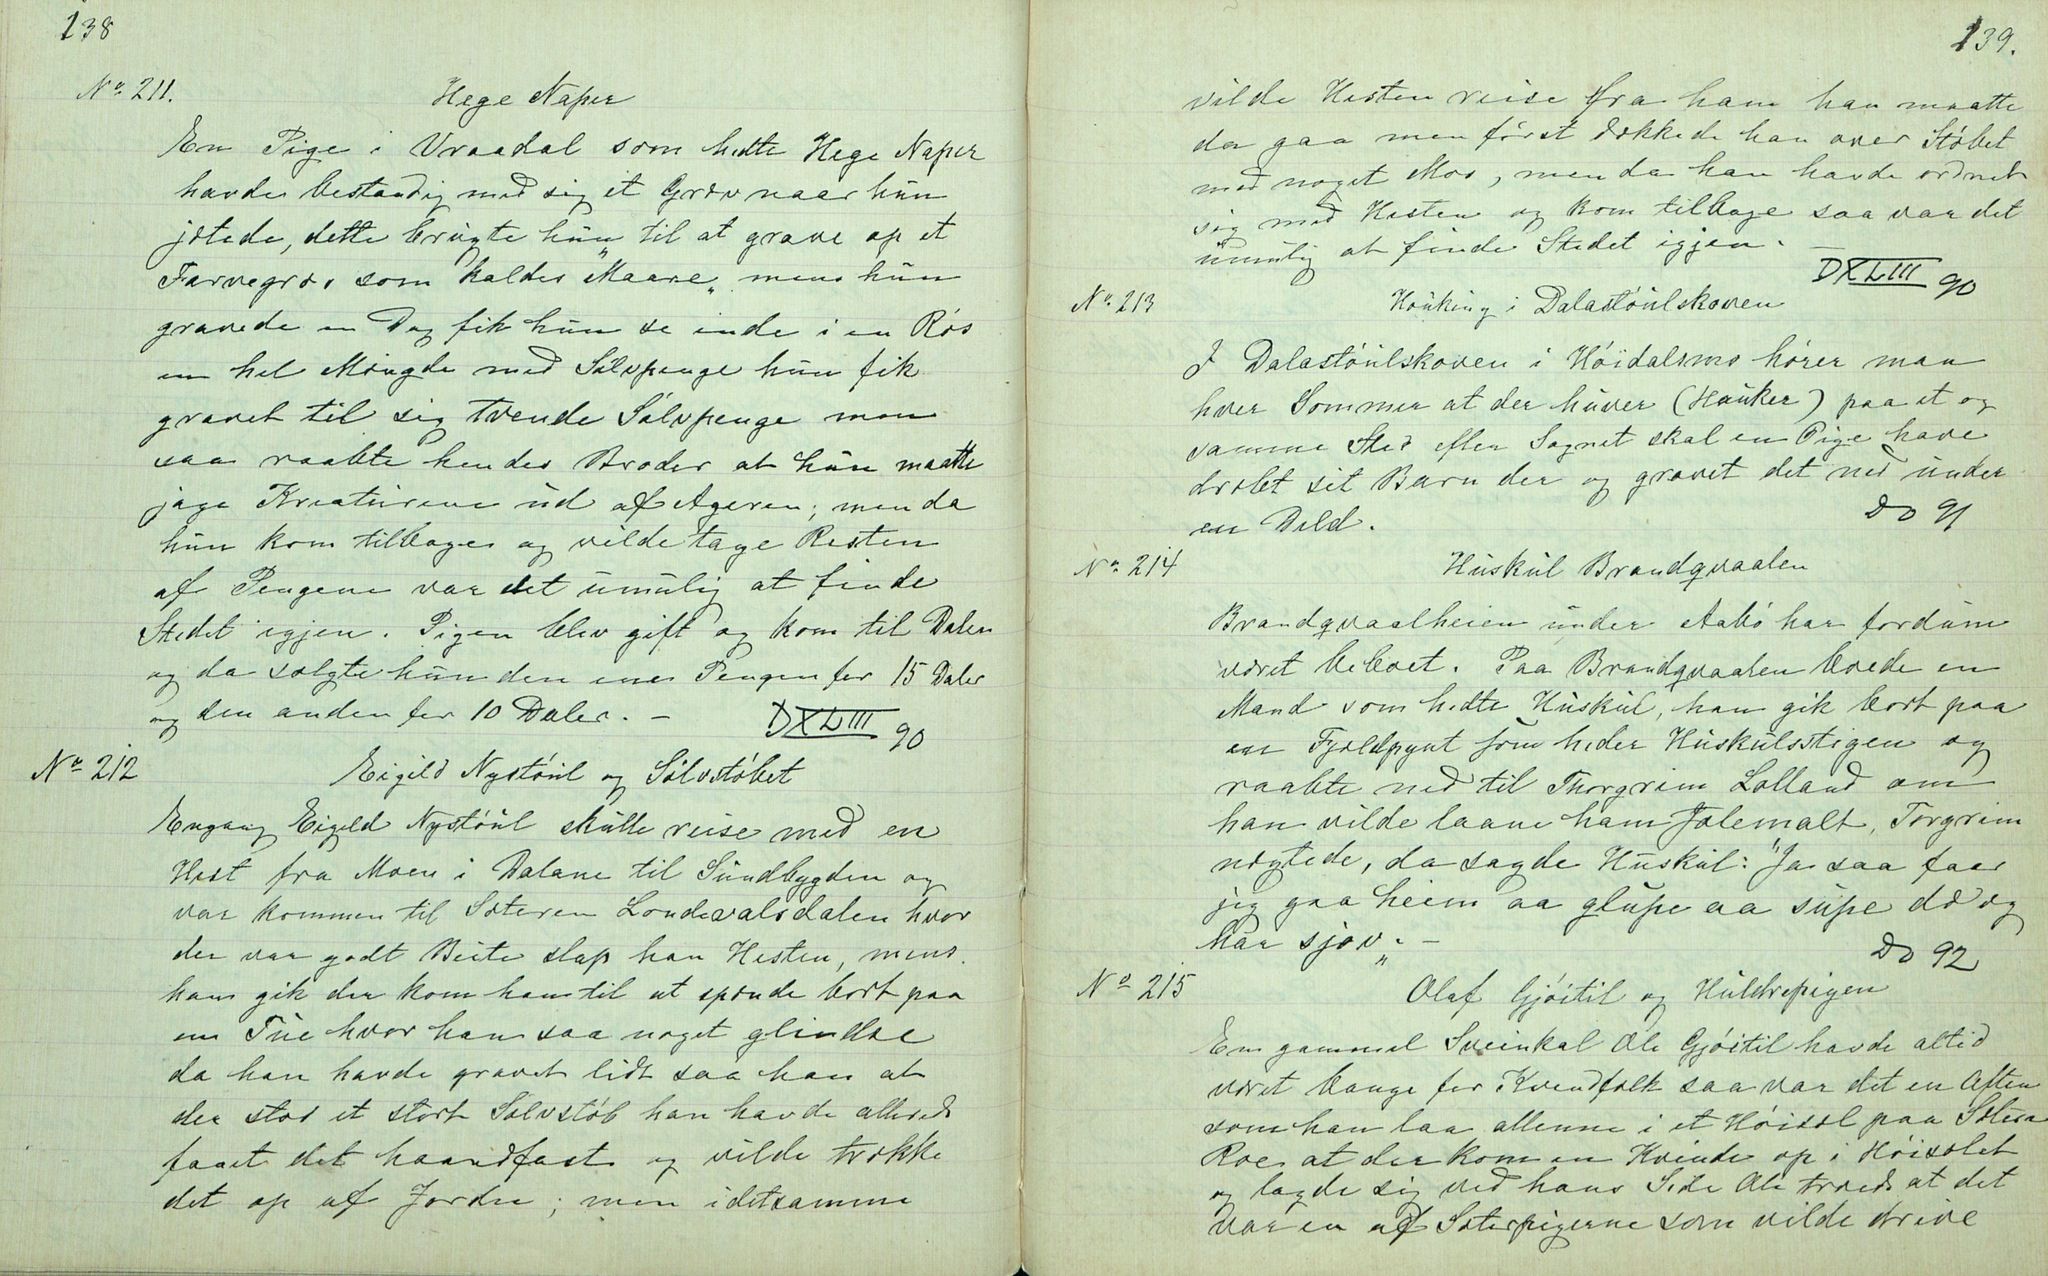 138
No 211. Hege Naper
En Pige i Vraadal som hedte Hege Naper
havde bestandig med sig et Græv naar hun
jætede, dette brugte hun til at grave op et
Farvegræs som kaldes "Maare" mens hun
gravede en Dag fik hun se inde i en Rös
en hel Mængde med Sölvpenge hun fik
gravet til sig tvende Sölvpenge men
saa raabte hendes Broder at hun maatte
jage Kreaturene ud af Ageren; men da
hun kom tilbage og vilde tage Resten
af Pengene var det umulig at finde
Stedet igjen. Pigen blev gift og kom til Dalen
og da solgte hun den ene Pengen for 15 Daler
og den anden for 10 Daler. –
DXLIII 90
No 212 Eigild Nystöúl og Sölvstöbet
Engang Eigild Nystöúl skulle reise med en
Hest fra Moen i Dalane til Sundbygden og
var kommen til Sæteren Londevalsdalen hvor
der var godt Beite slap han Hesten, mens
han gik der kom han til at spænde bort paa
en Tue hvor han saa noget glindse
da han havde gravet lidt saa han at
der stod et stort Sölvstöb han havde allerede
faaet det haandfast og vilde trække
det op af Jorden; men i detsamme
139.
vilde Hesten reise fra ham han maatte
da gaa men först dækkede han over Stöbet
med noget Mos, men da han havde ordnet
sig med Hesten og kom tilbage saa var det
umulig at finde Stedet igjen. –
DXLIII 90
No 213 Houking i Dalastöúlskoven
I Dalastöúlskoven i Höidalsmo hörer man
hver Sommer at der huver (Hauker) paa et og
samme Sted efter Sagnet skal en Pige have
dræbt sit Barn der og gravet det ned under
en Deld.
Do 91
No 214 Huskul Brandqvaalen
Brandqvaalheien under Aabö har fordum
været beboet. Paa Brandqvaalen boede en
Mand som hedte Huskul, han gik bort paa
en Fjeldpynt som heder Huskulsstigen og
raabte ned til Thorgrim Lolland om
han vilde laane ham Jolemalt, Torgrim
nægtede, da sagde Huskul: "Ja saa faar
jeg gaa heim aa glupe aa supe dæ eg
har sjøv". –
Do 92
No 215 Olaf Gjöitil og Huldrepigen
En gammel Sveinkal Ole Gjöitil havde altid
været bange for Kvendfolk saa var det en Aften
som han laa allenne i et Höisæl paa Sætern
Roe at der kom en Kvinde op i Höisælet
og lagde sig ved hans Side Ole troede at det
var en af Sæterpigerne som vilde drive